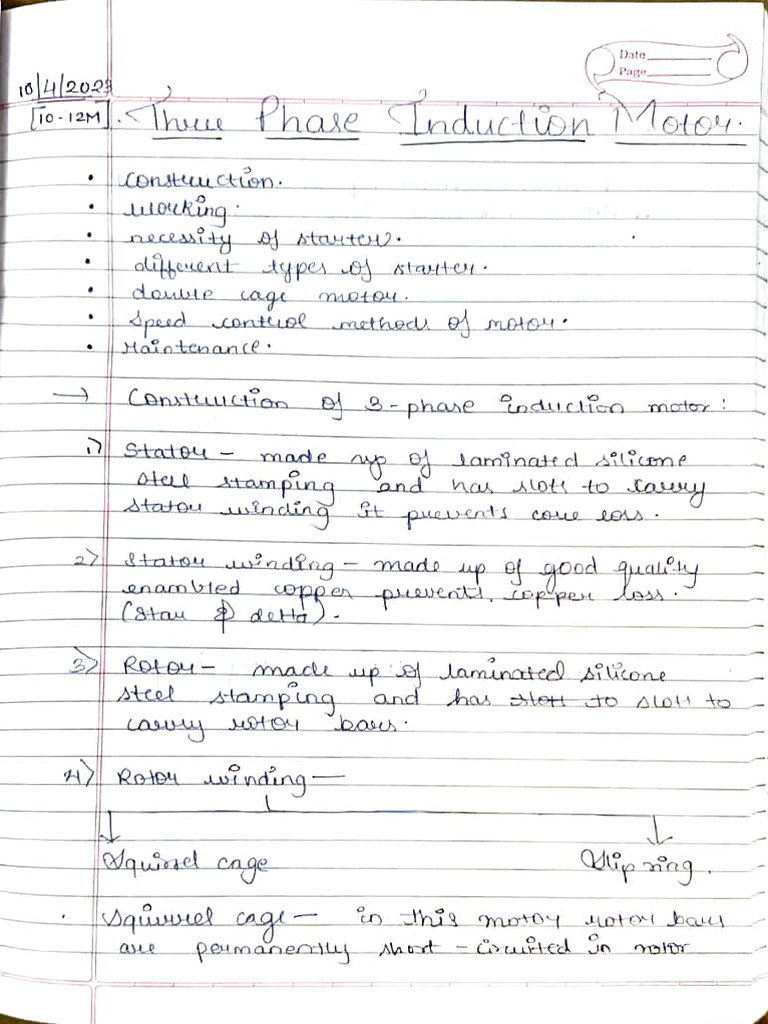 Date
Page
10/4/2023
[10-12M]. Three Phase Induction Motor.
• construction.
• working.
• necessity of starter.
• different types of starter.
• double cage motor.
• speed control methods of motor.
• Maintenance.
→ Construction of 3-phase induction motor:
1) Stator - made up of laminated silicone
steel stamping and has slots to carry
stator winding it prevents core loss.
2) Stator winding - made up of good quality
enambled copper prevents copper loss.
(star & delta).
3) Rotor - made up of laminated silicone
steel stamping and has slots to slots to
carry rotor bars.
4) Rotor winding —
Squirrel cage Slip ring.
• Squirrel cage - in this motor rotor bars
are permanently short-circuited in rotor